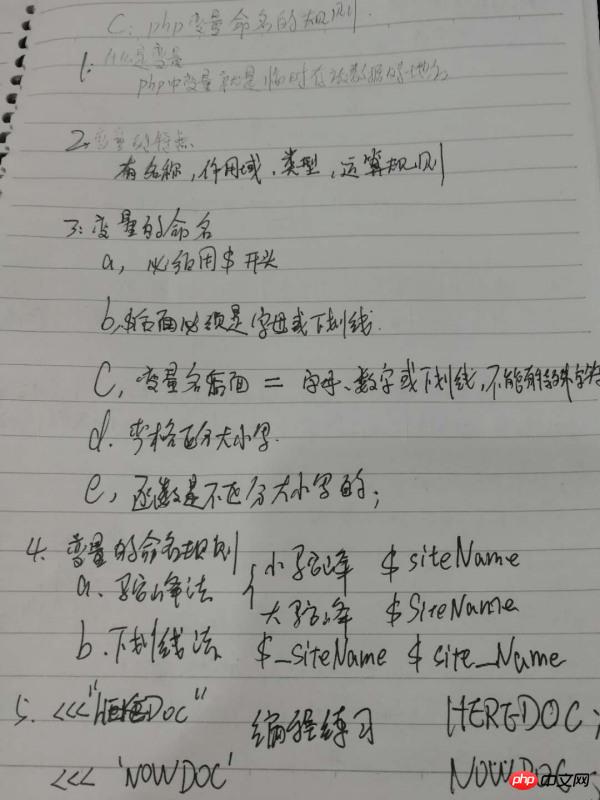 C: php变量命名的规则.
1: 什么是变量
php中变量就是临时存放数据的地方
2. 变量的特点
有名称,作用域,类型,运算规则
3: 变量的命名
a, 必须用$开头
b, $后面必须是字母或下划线.
C, 变量名后面 = 字母、数字或下划线,不能有特殊字符
d. 严格区分大小写.
e, 函数是不区分大小写的;
4. 变量的命名规则
a. 驼峰法 { 小驼峰 $siteName
大驼峰 $SiteName
b. 下划线法 $_siteName $site_Name
5. <<<"HEREDOC" 编程练习 HEREDOC;
<<<'NOWDOC' NOWDOC;
php中文网